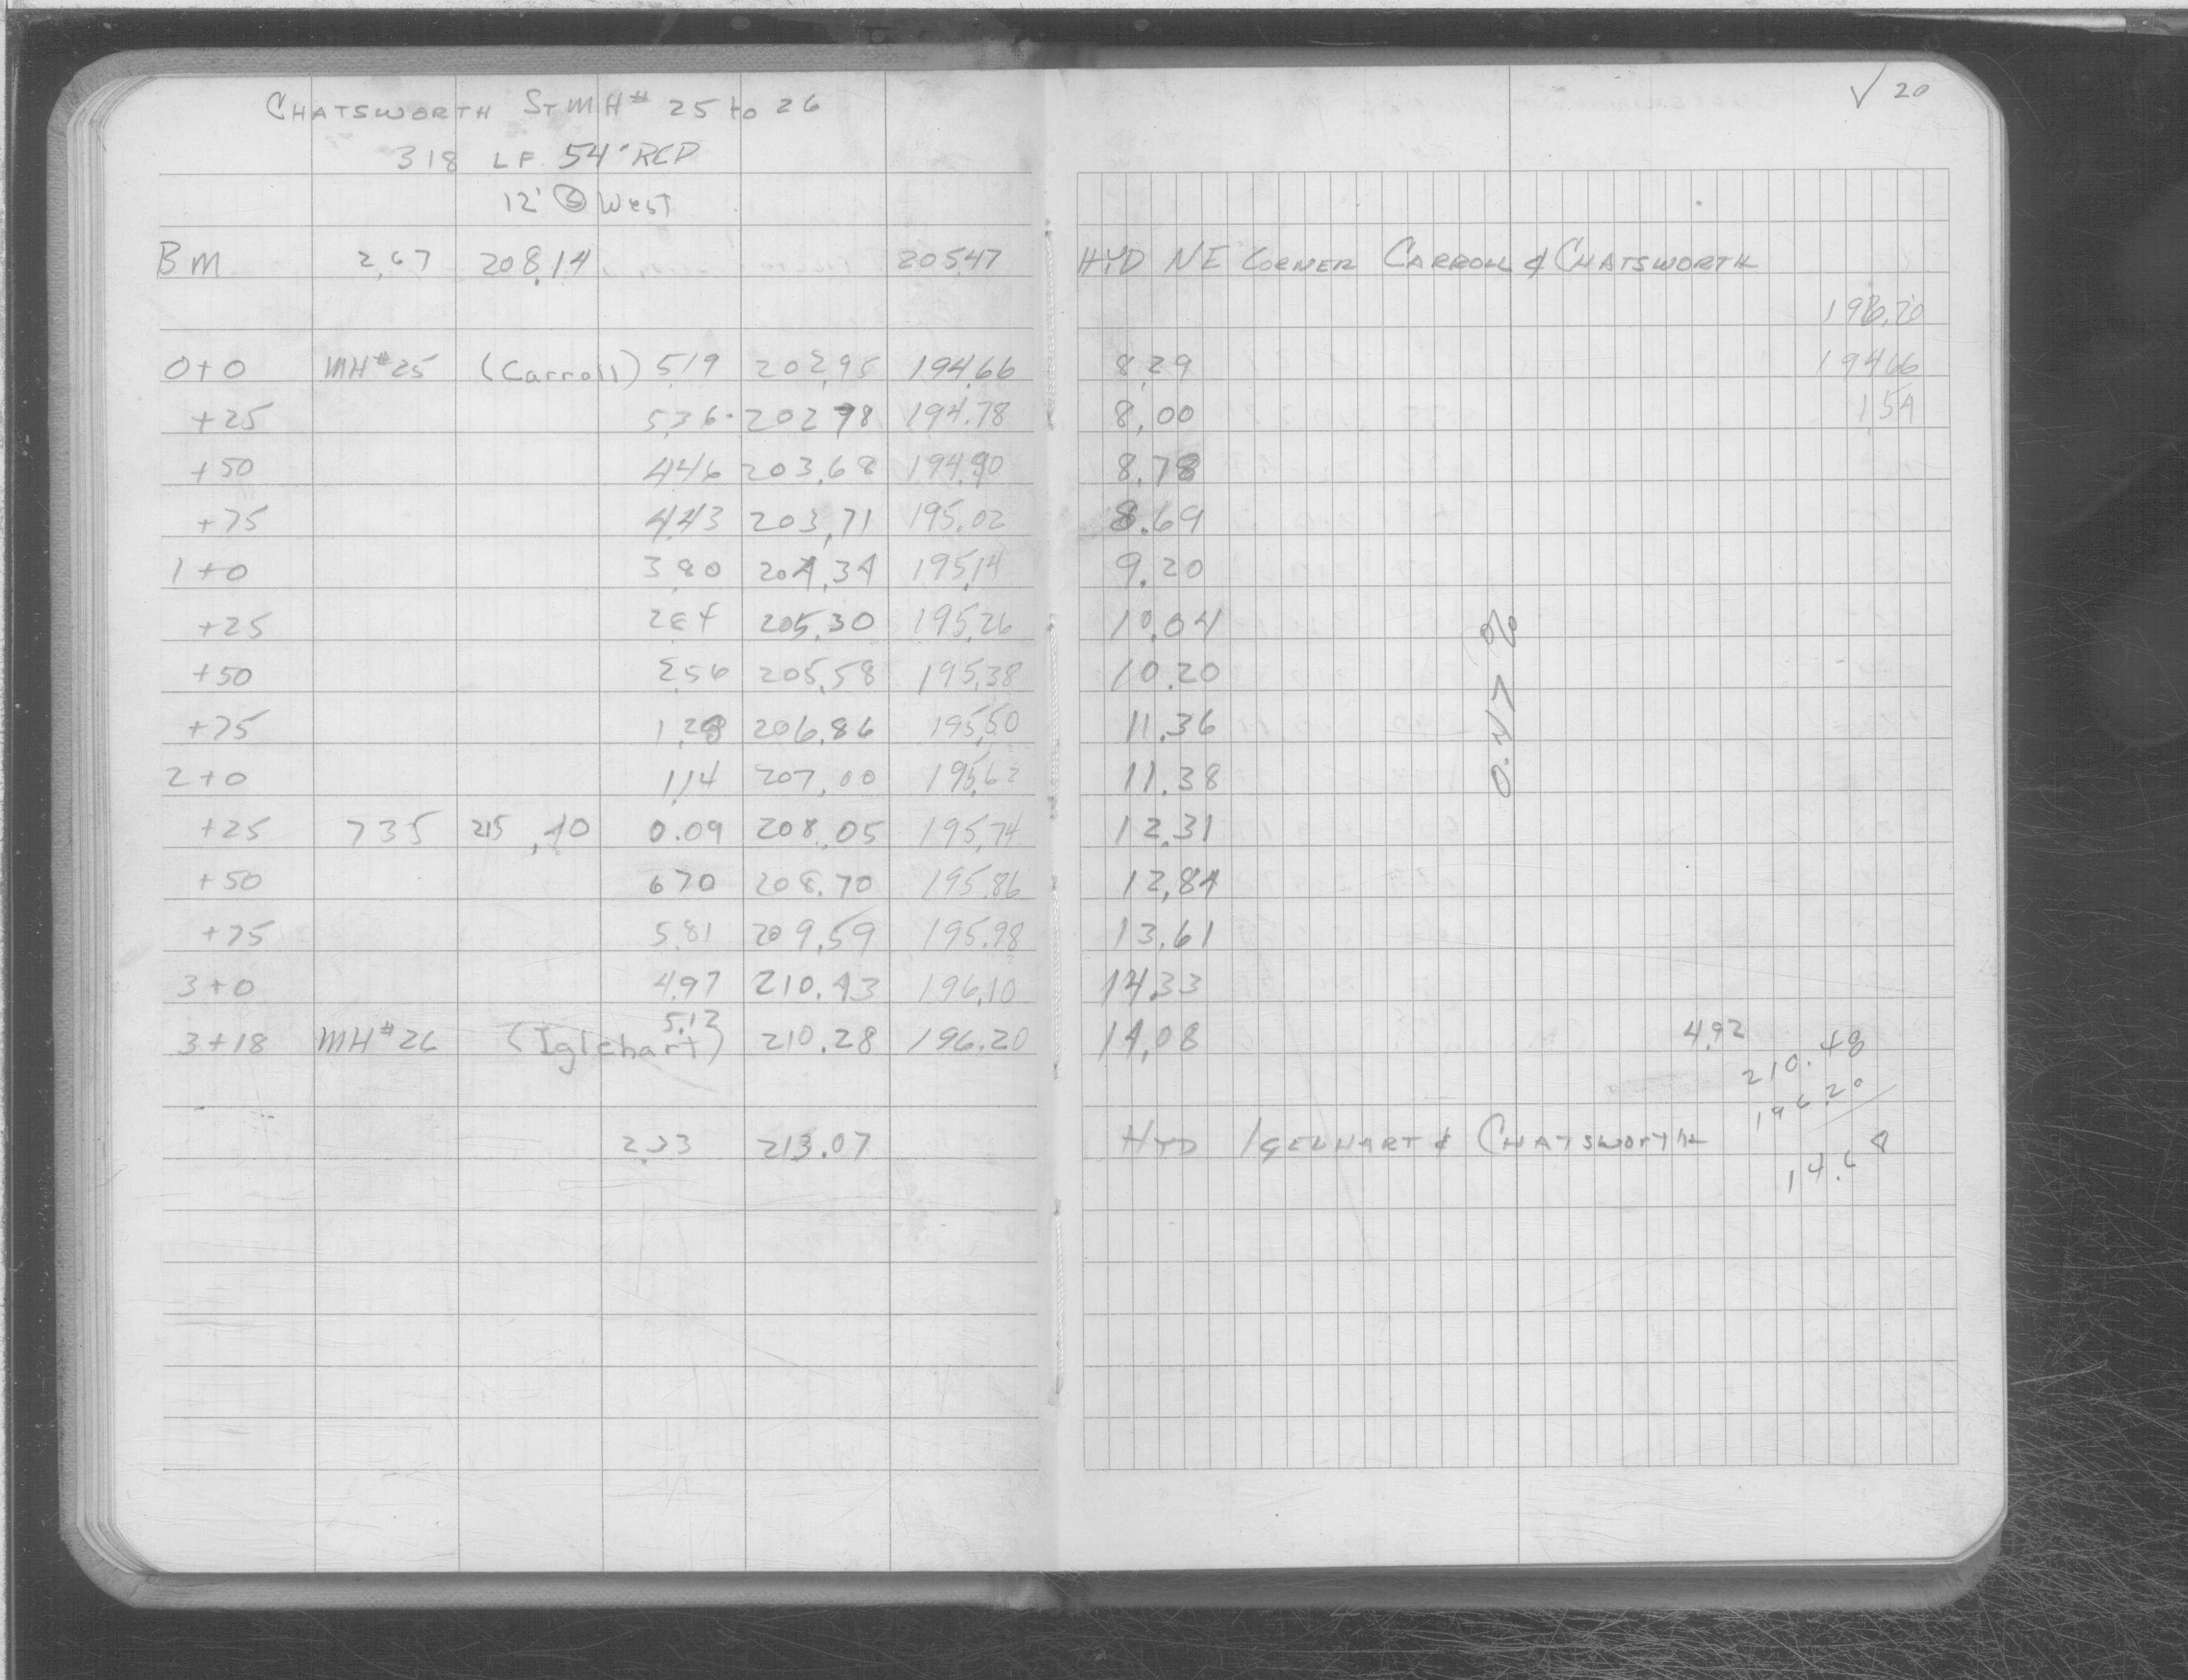 CHATSWORTH ST MH# 25 to 26
318 LF. 54" RCP
12' West
√ 20
BM 2.67 208.14 205.47 HYD NE CORNER CARROLL & CHATSWORTH
196.20
0+0 MH#25 (Carroll) 5.19 202.95 194.66 8.29 194.66
+25 5.36 202.78 194.78 8.00 1.54
+50 4.46 203.68 194.90 8.78
+75 4.43 203.71 195.02 8.69
1+0 3.80 204.34 195.14 9.20
+25 2.84 205.30 195.26 10.04
+50 2.56 205.58 195.38 10.20
+75 1.28 206.86 195.50 11.36
2+0 1.14 207.00 195.62 11.38
0.47%
+25 7.35 215.40 0.09 208.05 195.74 12.31
+50 6.70 208.70 195.86 12.84
+75 5.81 209.59 195.98 13.61
3+0 4.97 210.43 196.10 14.33
3+18 MH#26 (Iglehart) 5.12 210.28 196.20 14.08 4.92
210.48
196.20
2.33 213.07 HYD IGELHART & CHATSWORTH